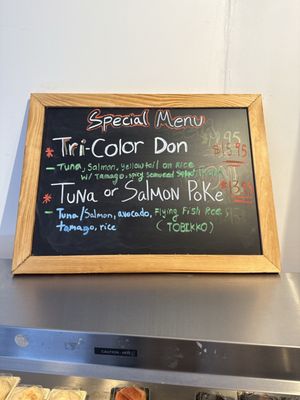 Special Menu
* Tri-Color Don $15.95
- Tuna, Salmon, yellowtail on Rice
w/ Tamago, spicy seaweed salad
* Tuna or Salmon Poke $13.95
- Tuna/Salmon, avocado, Flying Fish Roe
tamago, rice (TOBIKKO)
CAUTION - HOT